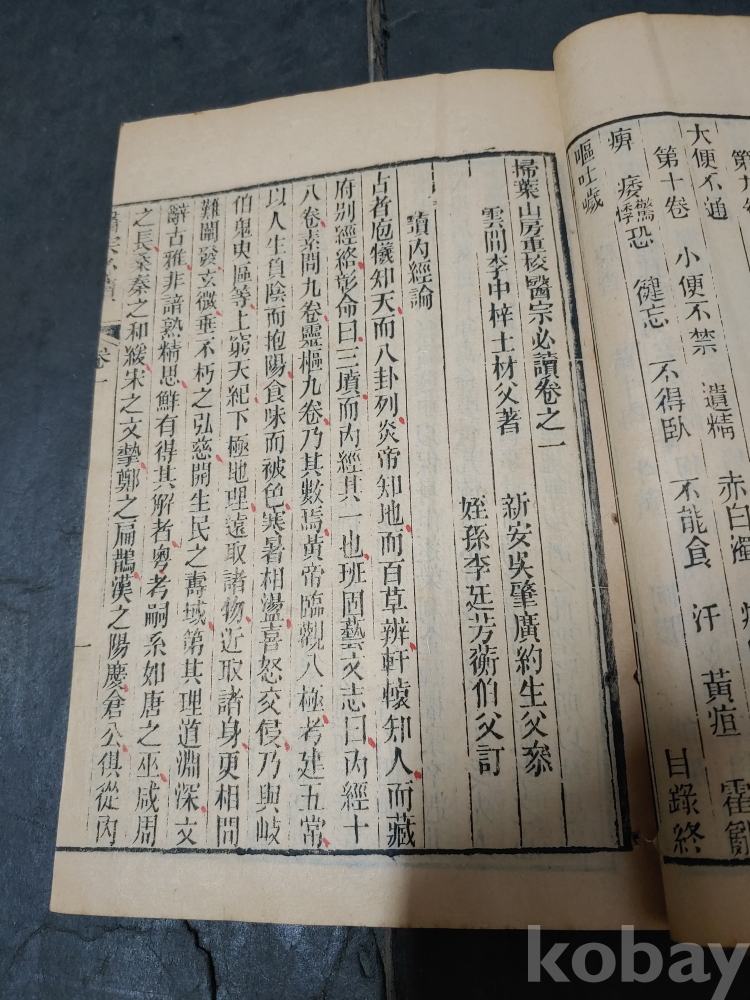 第九卷
大便不通 小便不禁 遺精 赤白濁
第十卷
痺 痿 驚悸 恐 健忘 不得臥 不能食 汗 黃疸 霍亂
嘔吐噦
目錄終
掃葉山房重校醫宗必讀卷之一
雲間李中梓士材父著
新安吳肇廣約生父叅
姪孫李廷芳蘅伯父訂
讀內經論
古者庖犧知天而八卦列炎帝知地而百草辨軒轅知人而藏
府別經絡彰命曰三墳而內經其一也班固藝文志曰內經十
八卷素問九卷靈樞九卷乃其數焉黃帝臨觀八極考建五常
以人生負陰而抱陽食味而被色寒暑相盪喜怒交侵乃與岐
伯鬼臾區等上窮天紀下極地理遠取諸物近取諸身更相問
難闡發玄微垂不朽之弘慈開生民之壽域第其理道淵深文
辭古雅非諳熟精思鮮有得其解者粵考嗣系如唐之巫咸周
之長桑秦之和緩宋之文摯鄭之扁鵲漢之陽慶倉公俱從內
醫宗必讀
卷一
一
kobay